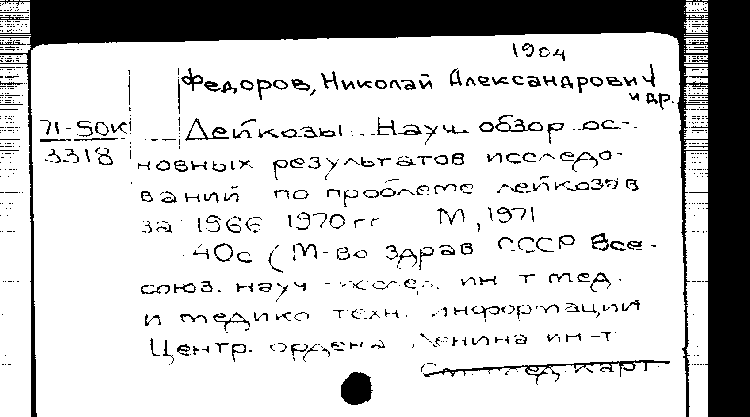 1904
Федоров, Николай Александрович
и др.
71-50К
3318
Лейкозы. Науч. обзор ос-
новных результатов исследо-
ваний по проблеме лейкозов
за 1966 1970 гг М, 1971
40с (М-во здрав СССР Все-
союз. науч исслед. ин т мед.
и медико техн. информации
Центр. ордена Ленина ин-т
См. след. карт